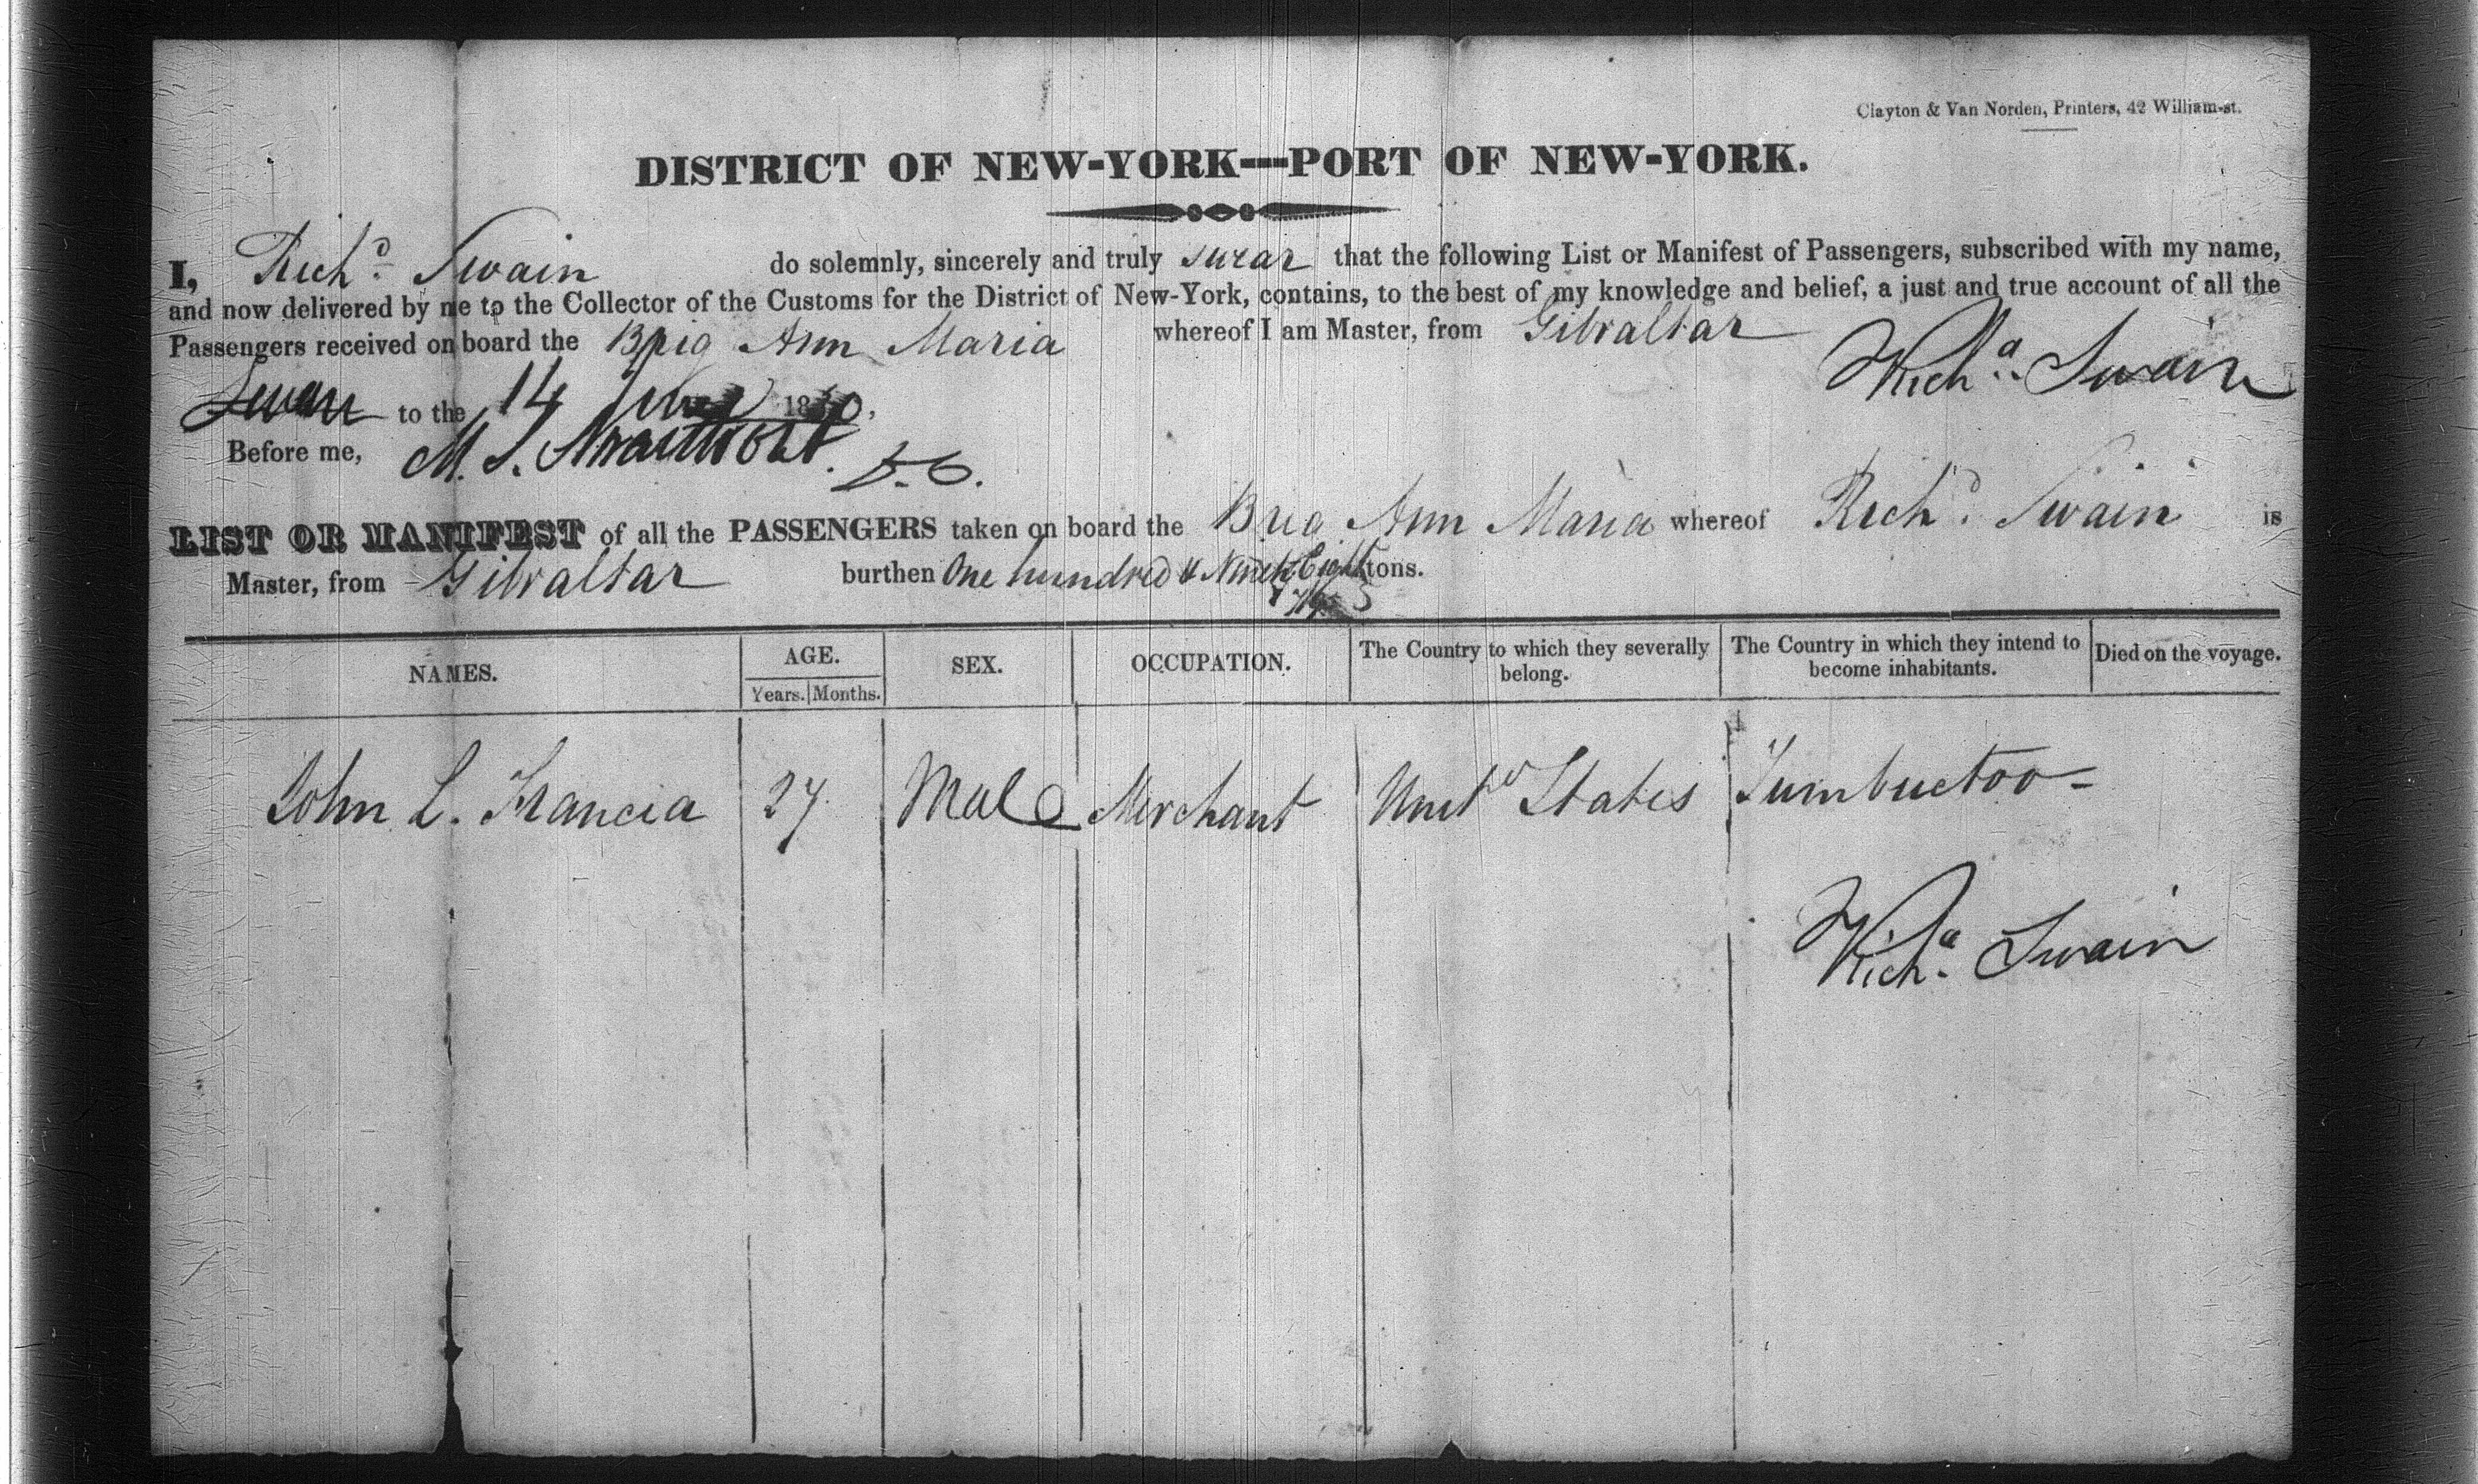 Clayton & Van Norden, Printers, 42 William-st.
DISTRICT OF NEW-YORK—PORT OF NEW-YORK.
I, Richd. Swain do solemnly, sincerely and truly swear that the following List or Manifest of Passengers, subscribed with my name,
and now delivered by me to the Collector of the Customs for the District of New-York, contains, to the best of my knowledge and belief, a just and true account of all the
Passengers received on board the Brig Ann Maria whereof I am Master, from Gibraltar
Richd. Swain
to the 14 18
Before me, M. S. Swartwout. D. C.
LIST OR MANIFEST of all the PASSENGERS taken on board the Brig Ann Maria whereof Richd. Swain is
Master, from Gibraltar burthen One hundred & Ninety Eight tons.
NAMES. AGE. SEX. OCCUPATION. The Country to which they severally belong. The Country in which they intend to become inhabitants. Died on the voyage.
Years. Months.
John L. Francia 27 Male Merchant Unitd States Tumbuctoo
Richd. Swain